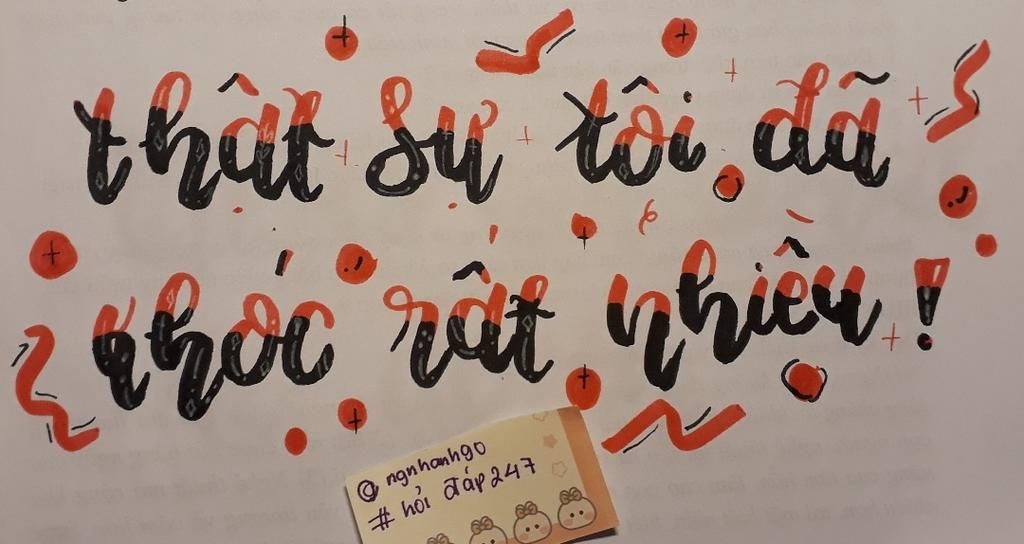 thật sự tôi đã
khóc rất nhiều!
@ngnhanh90
#hỏi đáp247